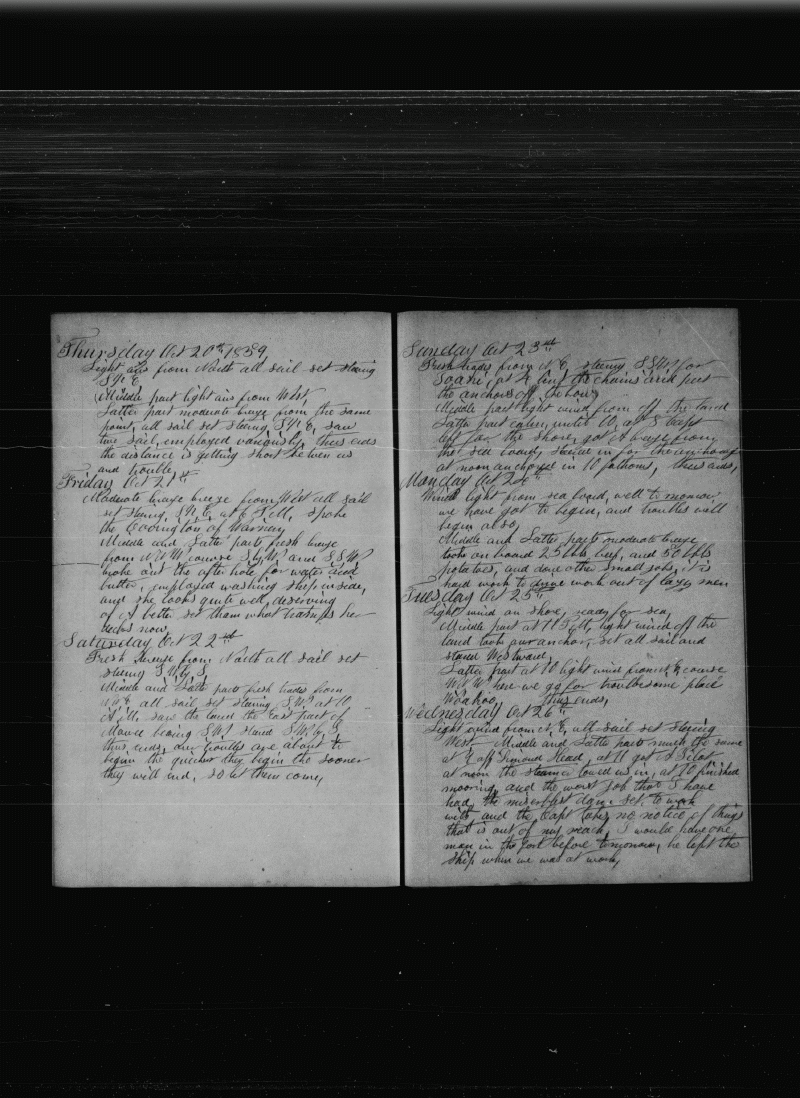 Thursday Oct 20th 1859
Light airs from North all sail set steering
S by E,
Middle part light airs from West,
Latter part moderate breeze from the same
point, all sail set steering S by E, saw
two sail, employed variously, thus ends
the distance is getting short between us
and trouble,
Friday Oct 21st
Moderate breeze from West all sail
set steering, S by E, at 6 P.M, spoke
the Covington of Warren,
Middle and Latter parts fresh breeze
from N.N.W. course S by W and S.S.W
broke out the after hole for water and
butter, employed washing ship inside,
and she looks quite well, deserving
of a better set than what tramps her
decks now,
Saturday Oct 22nd
Fresh breeze from North all sail set
steering S.W. by S,
Middle and Latter parts fresh trades from
N.E all sail set steering S.W. at 10
A.M, saw the land the East part of
Mowee bearing S.W stood S.W. by S
thus ends, our troubles are about to
begin the quicker they begin the sooner
they will end, so let them come,
Sunday Oct 23rd
Fresh trades from N.E, steering S.S.W. for
at 4 bent the chains and put
the anchors off the bow,
Middle part light wind from off the land
Latter part calm, until 10, at 8 Capt
left for the shore, got a breeze from
the sea board, steered in for the anchorage
at noon anchored in 10 fathoms, thus ends,
Monday Oct 24th
Wind light from sea board, well to morrow
we have got to begin, and troubles will
begin also,
Middle and Latter parts moderate breeze
took on board 25 bbls beef, and 50 bbls
potatoes, and done other small jobs, it is
hard work to drive work out of lazy men
Tuesday Oct 25th
Light wind on shore, ready for sea,
Middle part at 11 P.M, light wind off the
land took our anchor, set all sail and
stood Westward,
Latter part at 10 light wind from N.E, course
W.N.W. here we go for troublesome place
Woahoo, thus ends,
Wednesday Oct 26th
Light wind from N.E, all sail set steering
West. Middle and Latter parts much the same
at 7 off Dimond Head, at 11 got a Pilot
at noon the steamer towed us in, at 10 finished
mooring, and the worst job that I have
had, the miserblest dam set, to work
with, and the Capt takes no notice of things
that is out of my reach, I would have one
man in the fort before tomorrow, he left the
ship when we was at work,